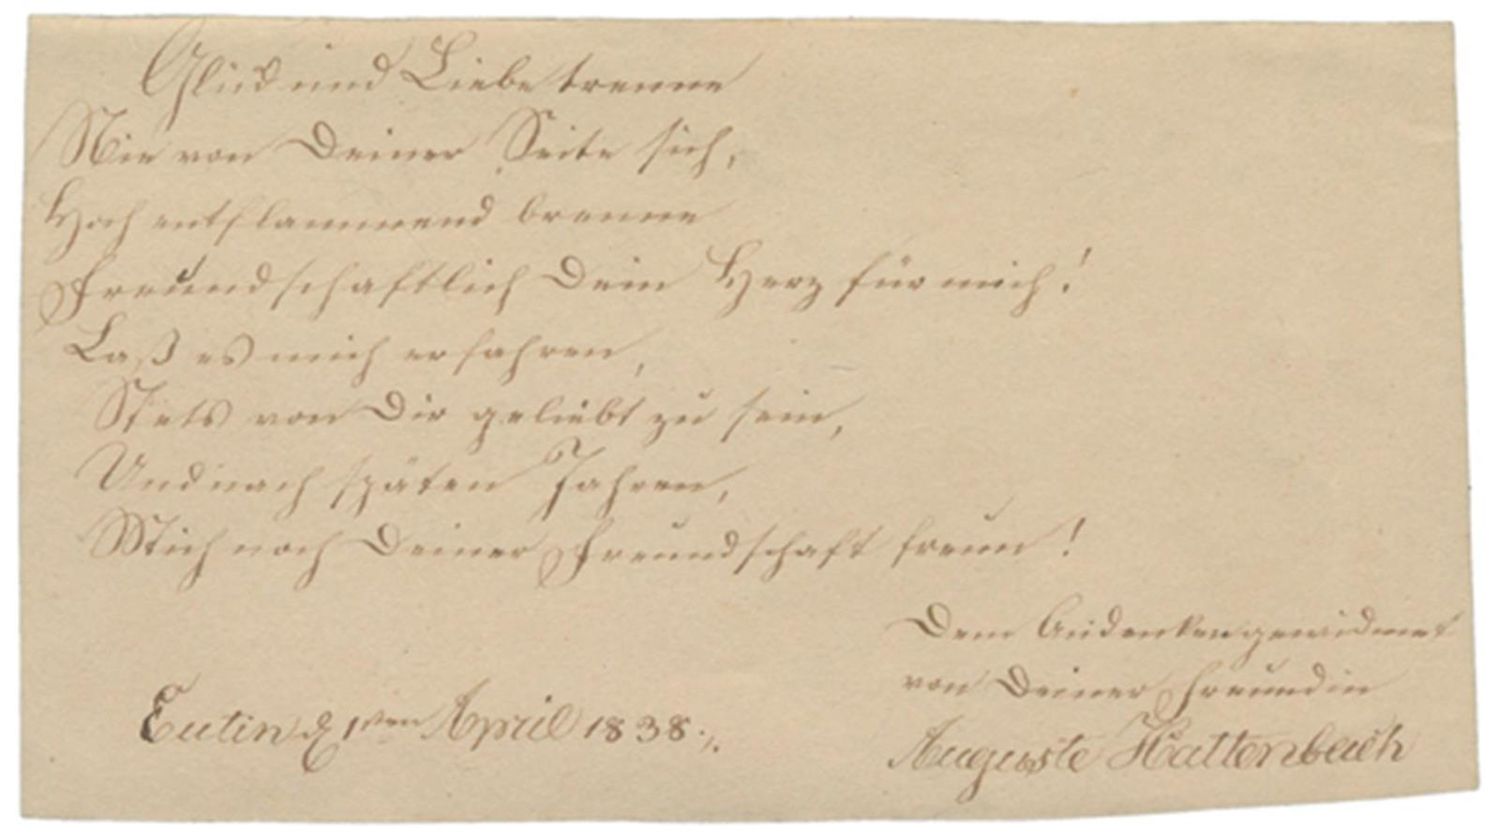 Glück und Liebe trenne
Nie von Deiner Seite sich,
Hoch entflammend brenne
Freundschaftlich Dein Herz für mich!
Laß es mich erfahren,
Stets von Dir geliebt zu sein,
Und nach späten Jahren,
Mich noch Deiner Freundschaft freun!
Dem Andenken gewidmet
von Deiner Freundin
Eutin d 1sten April 1838.
Auguste Hattenbach